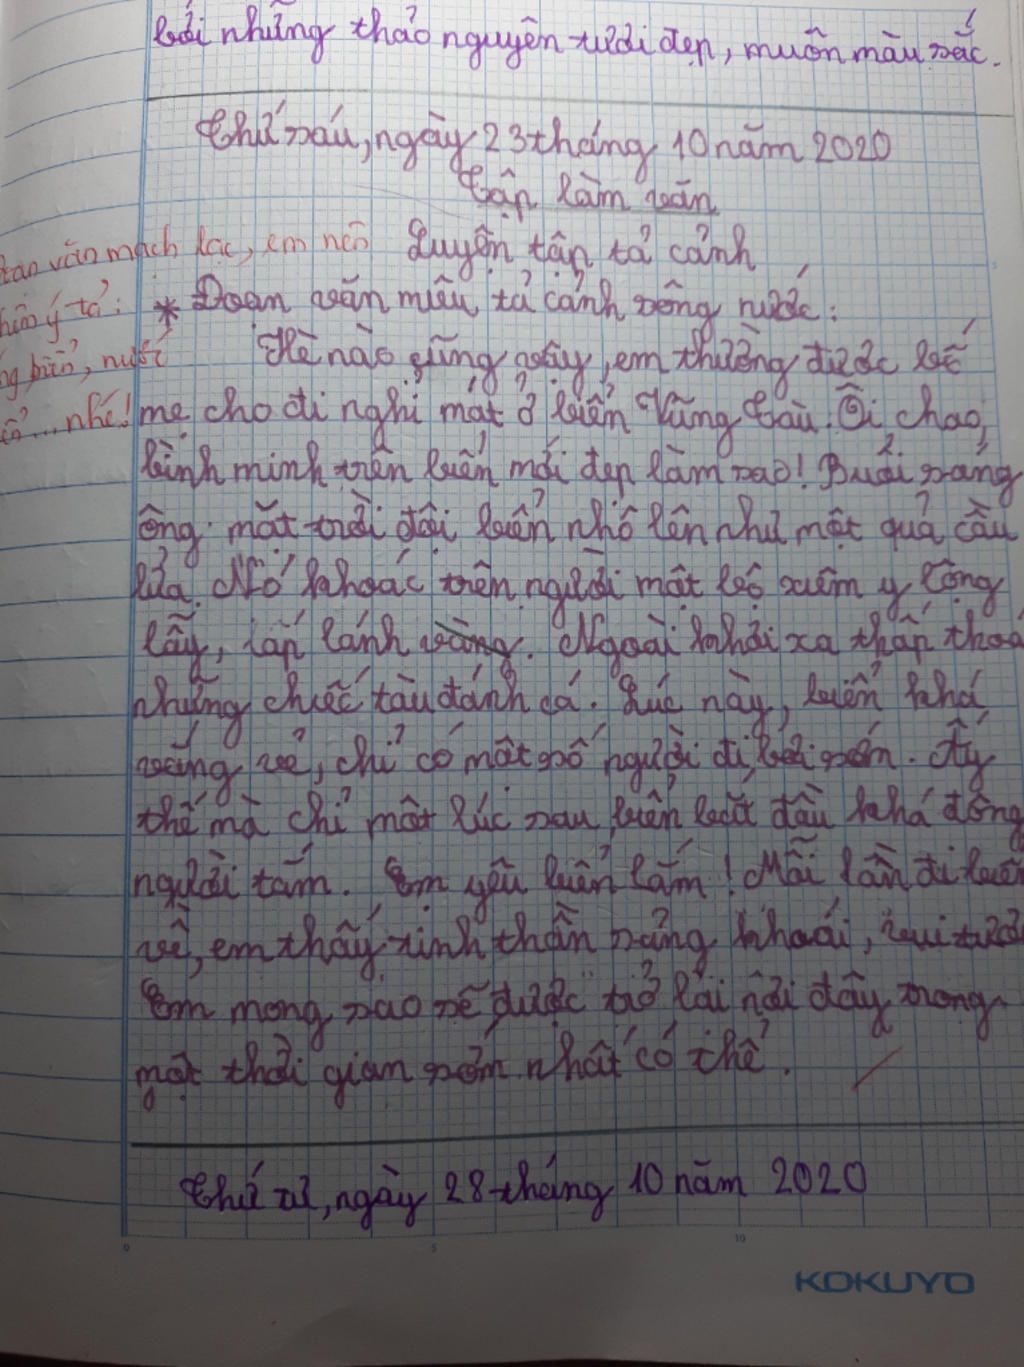 bởi những thảo nguyên tươi đẹp, muôn màu sắc.
Thứ sáu, ngày 23 tháng 10 năm 2020
Tập làm văn
văn mạch lạc, em nên
Luyện tập tả cảnh
ý tả:
* Đoạn văn miêu tả cảnh sông nước:
biển, nước
Hè nào cũng vậy, em thường được bố
... nhé!
mẹ cho đi nghỉ mát ở biển Vũng Tàu. Ôi chao,
bình minh trên biển mới đẹp làm sao! Buổi sáng
ông mặt trời đội biển nhô lên như một quả cầu
lửa. Nó khoác trên người một bộ xiêm y lộng
lẫy, lấp lánh vàng. Ngoài khơi xa thấp thoá
những chiếc tàu đánh cá. Lúc này, biển khá
vắng vẻ, chỉ có một số người đi bơi sớm. Ấy
thế mà chỉ một lúc sau, biển bắt đầu khá đông
người tắm. Em yêu biển lắm! Mỗi lần đi biển
về, em thấy tinh thần sảng khoái, vui tươi
Em mong sao sẽ được trở lại nơi đây trong
một thời gian sớm nhất có thể.
Thứ tư, ngày 28 tháng 10 năm 2020
0 5 10
KOKUYO